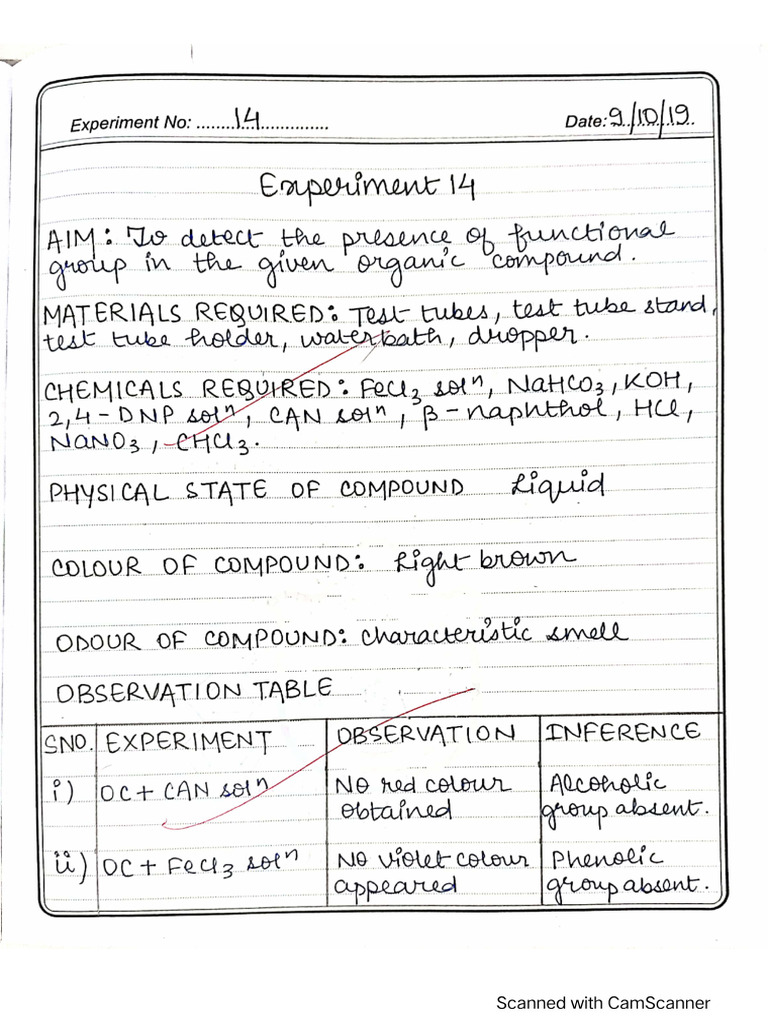 Experiment No: ........14.............. Date: 9/10/19.
Experiment 14
AIM: To detect the presence of functional
group in the given organic compound.
MATERIALS REQUIRED: Test tubes, test tube stand,
test tube holder, waterbath, dropper.
CHEMICALS REQUIRED: FeCl₃ solⁿ, NaHCO₃, KOH,
2,4-DNP solⁿ, CAN solⁿ, β-naphthol, HCl,
NaNO₃, CHCl₃.
PHYSICAL STATE OF COMPOUND Liquid
COLOUR OF COMPOUND: Light brown
ODOUR OF COMPOUND: characteristic smell
OBSERVATION TABLE
SNO. EXPERIMENT OBSERVATION INFERENCE
i) OC + CAN solⁿ No red colour Alcoholic
obtained group absent.
ii) OC + FeCl₃ solⁿ No violet colour Phenolic
appeared group absent.
Scanned with CamScanner